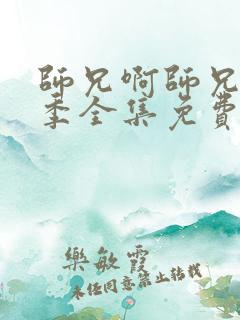 師兄啊師兄
季全集免費
樂敏霞
未經同意禁止轉載